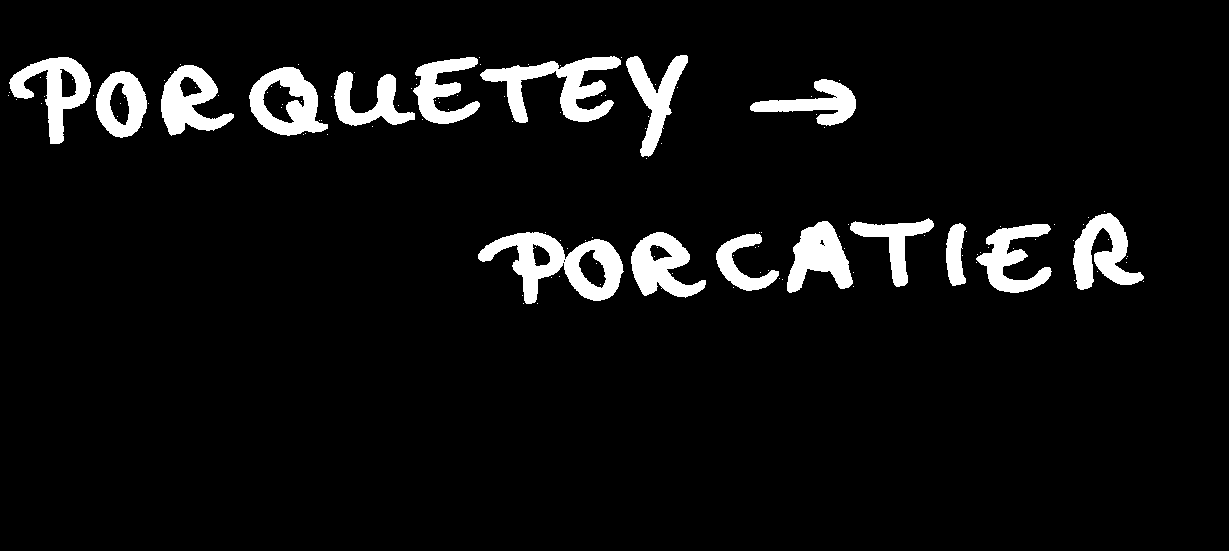 PORQUETEY →
PORCATIER